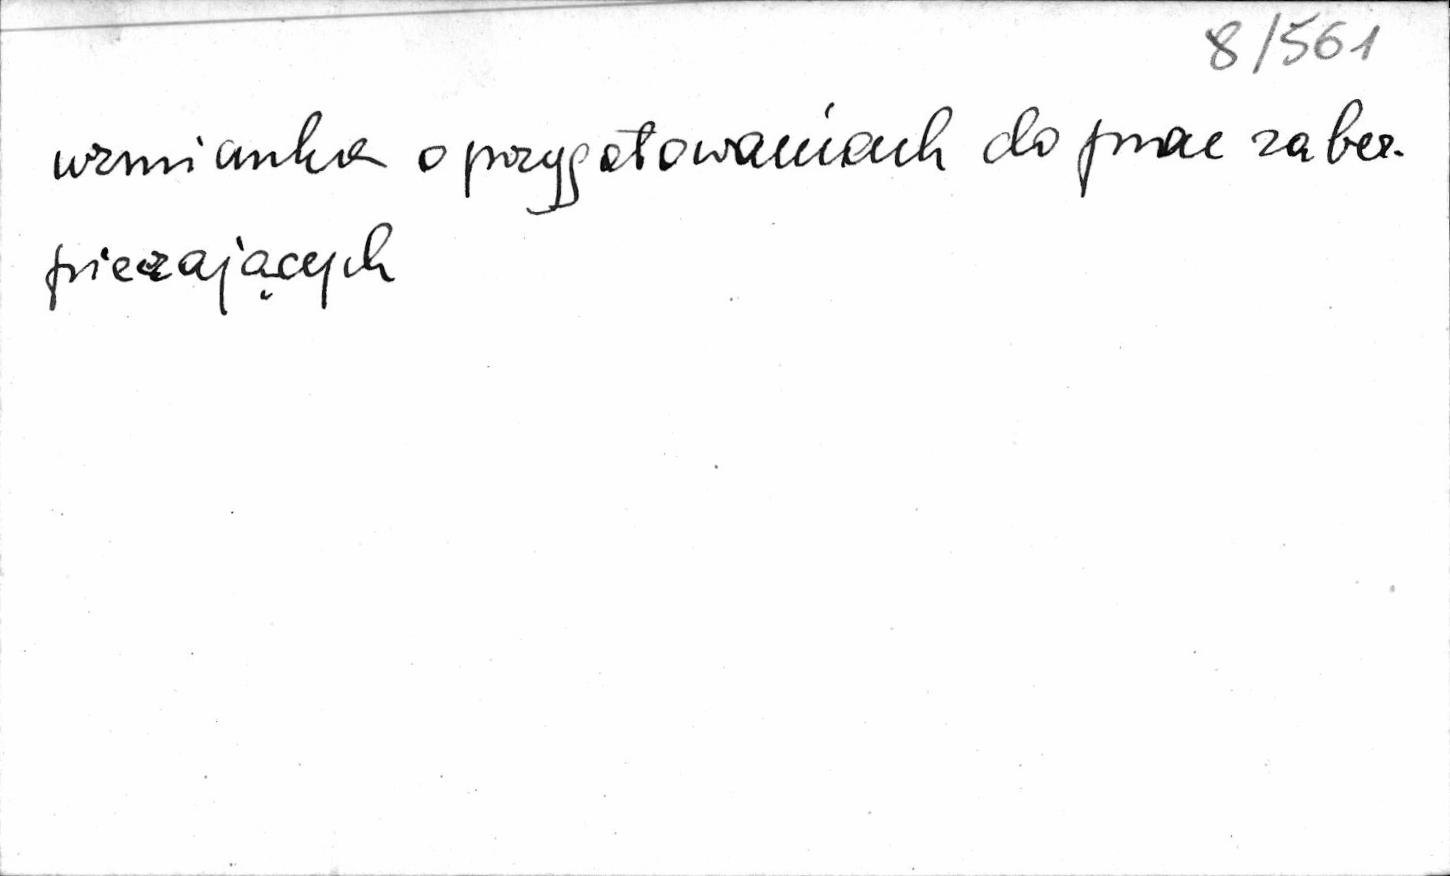 8/561
wzmianka o przygotowaniach do prac zabez-
pieczających